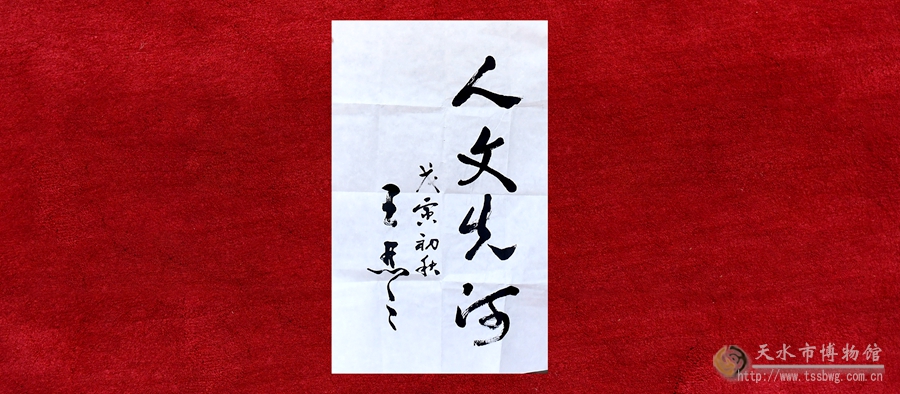 人文先河
戊寅初秋
天水市博物馆
http://www.tssbwg.com.cn